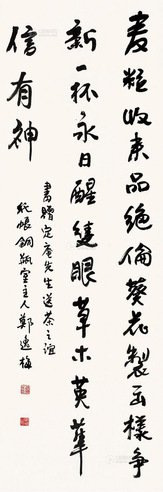 麦粒收来品绝伦葵花制出样争
新一杯永日醒双眼草木英华
信有神
书赠定庵先生送茶之谊
纸帐铜瓶室主人郑逸梅